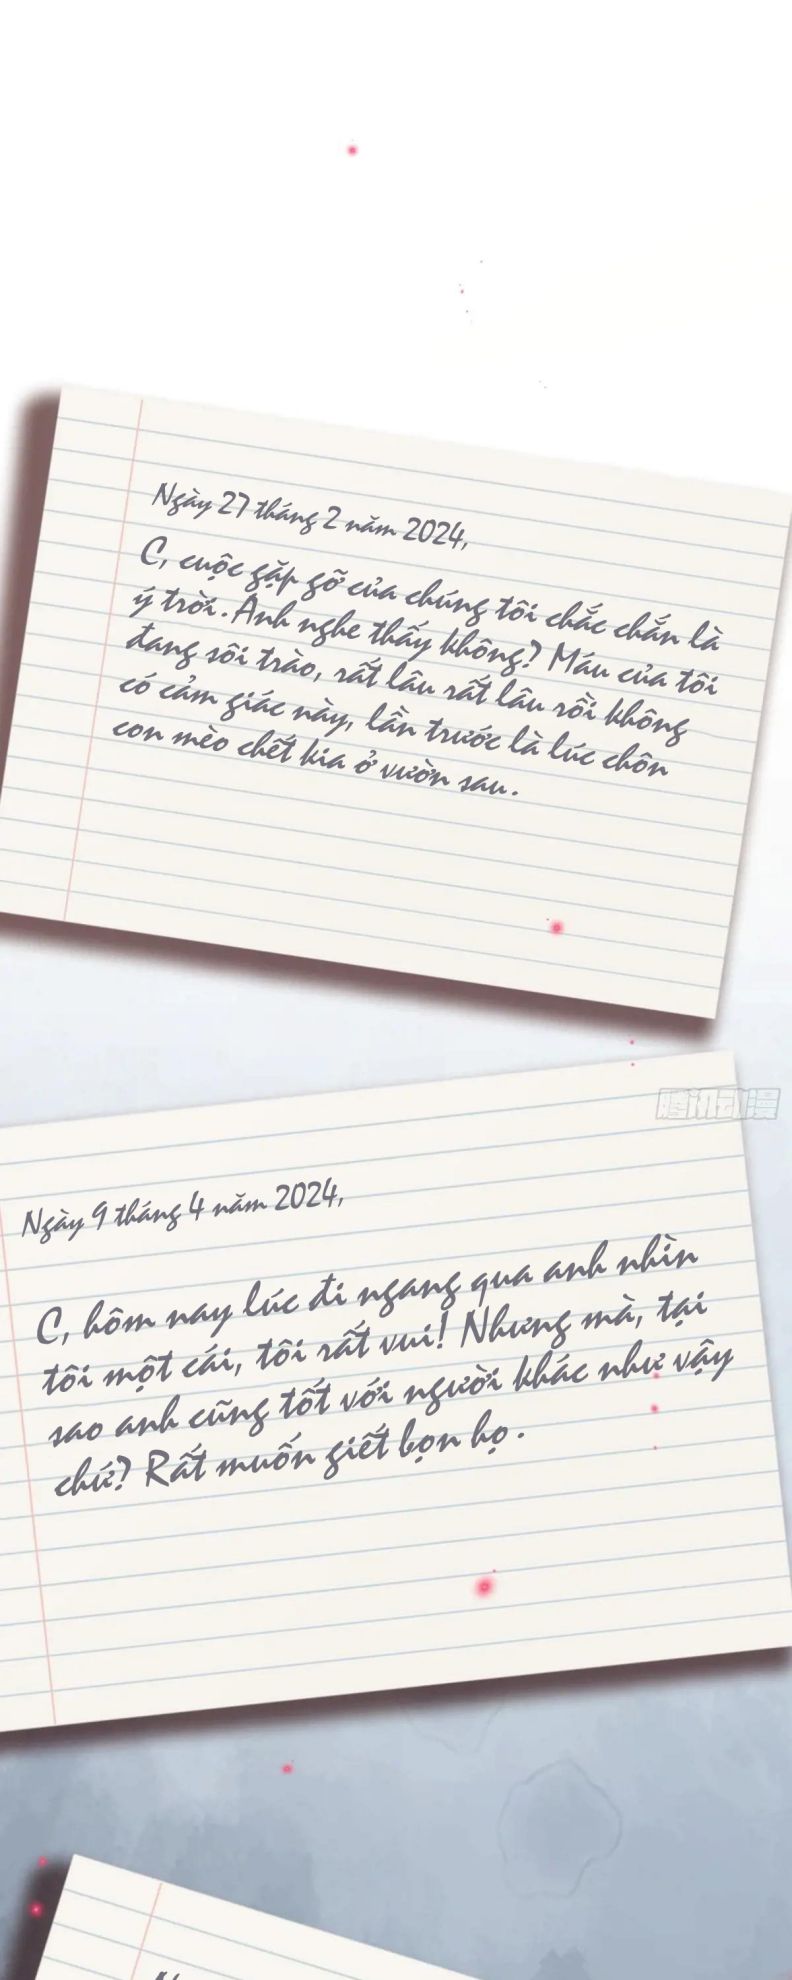 Ngày 27 tháng 2 năm 2024,
C, cuộc gặp gỡ của chúng tôi chắc chắn là
ý trời. Anh nghe thấy không? Máu của tôi
đang sôi trào, rất lâu rất lâu rồi không
có cảm giác này, lần trước là lúc chôn
con mèo chết kia ở vườn sau.
腾讯动漫
Ngày 9 tháng 4 năm 2024,
C, hôm nay lúc đi ngang qua anh nhìn
tôi một cái, tôi rất vui! Nhưng mà, tại
sao anh cũng tốt với người khác như vậy
chứ? Rất muốn giết bọn họ.